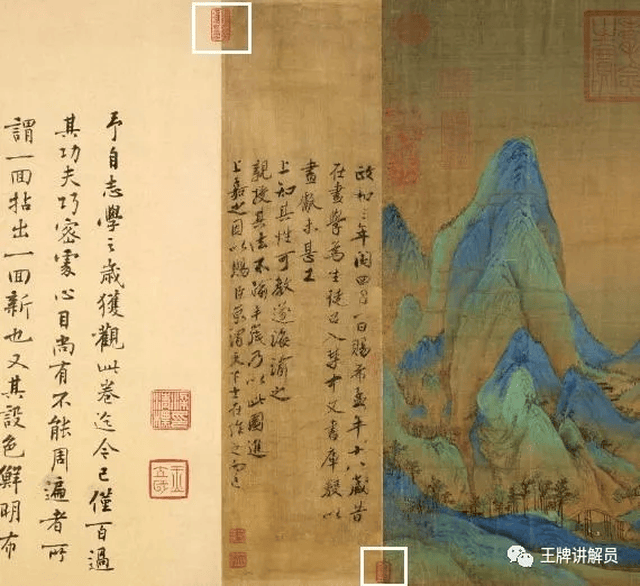 政和三年閏四月一日賜希孟年十八歲昔
在畫學為生徒召入禁中文書庫數以
畫獻未甚工
上知其性可教遂誨諭之
親授其法不踰半歲乃以此圖進
上嘉之因以賜臣京謂天下士在作之而已
予自志學之歲獲觀此卷迄今已僅百過
其功夫巧密處心目尚有不能周遍者所
謂一回拈出一回新也又其設色鮮明布
王牌讲解员